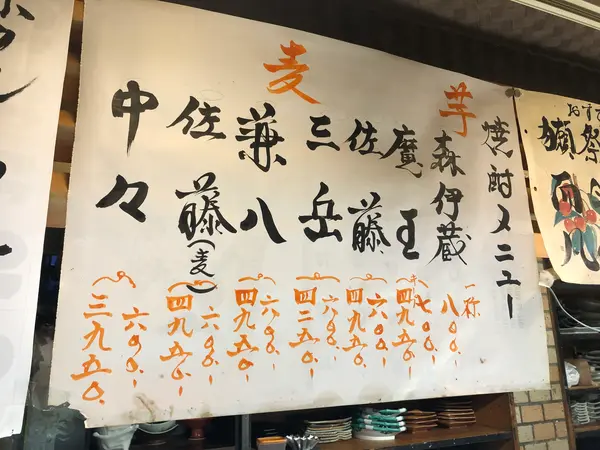 焼酎メニュー
芋
森伊蔵
一杯
八〇〇.
魔王
七〇〇.
四九五〇.
佐藤
六〇〇.
四九五〇.
三岳
六〇〇.
四二五〇.
麦
兼八
六〇〇.
四九五〇.
佐藤(麦)
六〇〇.
四九五〇.
中々
六〇〇.
三九五〇.
おす
獺祭